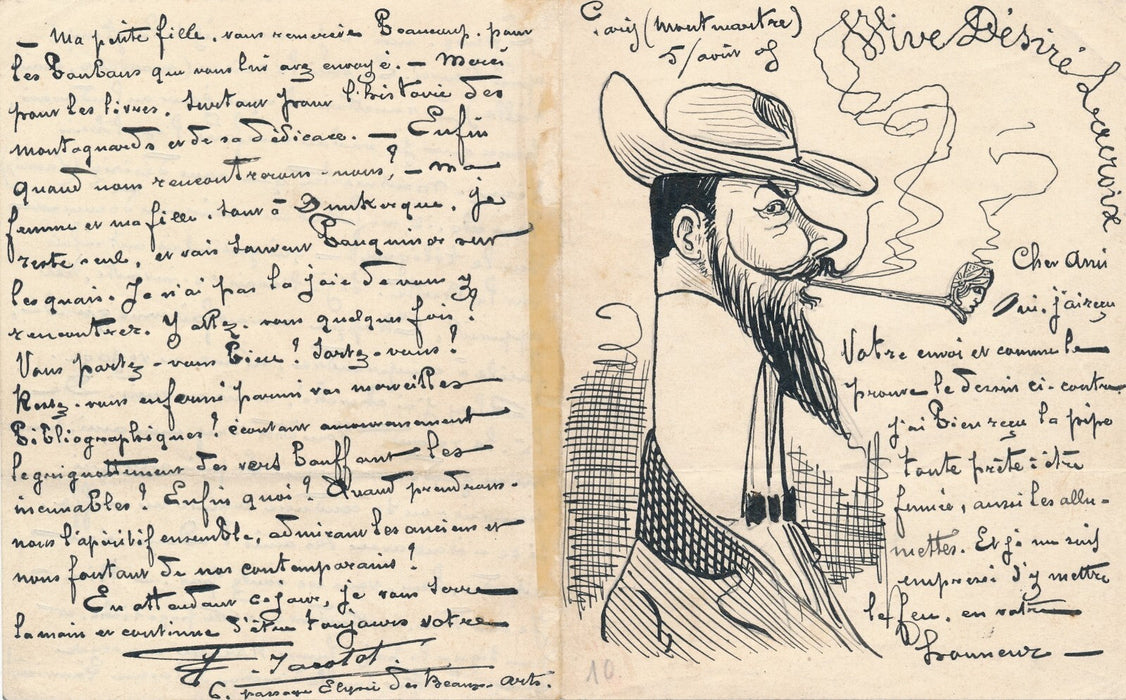 Paris (Montmartre)
5/août 05
Vive Désiré Lacroix
Cher Ami
Oui, j'ai reçu
Votre envoi et comme le
prouve le dessin ci-contre
j'ai bien reçu la pipe
toute prête à être
fumée, aussi les allu-
mettes. Et je me suis
empressé d'y mettre
le feu, en votre
honneur —
— Ma petite fille, vous remercie beaucoup, pour
les bonbons que vous lui avez envoyé. — Merci
pour les livres. Surtout pour l'histoire des
montagnards et de sa dédicace. — Enfin
quand nous rencontrerons-nous? — ma
femme et ma fille, sont à Dunkerque, je
reste seul, et vais souvent bouquiner sur
les quais. Je n'ai pas la joie de vous y
rencontrer. Y allez-vous quelques fois?
Vous portez-vous bien? Sortez-vous?
Restez-vous enfermé parmi vos merveilles
bibliographiques? écoutant amoureusement
le grignottement des vers bouffant les
incunables? Enfin quoi? Quand prendrons-
nous l'apéritif ensemble, admirant les anciens et
nous foutant de nos contemporains?
En attendant ce jour, je vous serre
la main et continue d'être toujours votre
Jacotot.
6, passage Elysée des Beaux-Arts.
10.